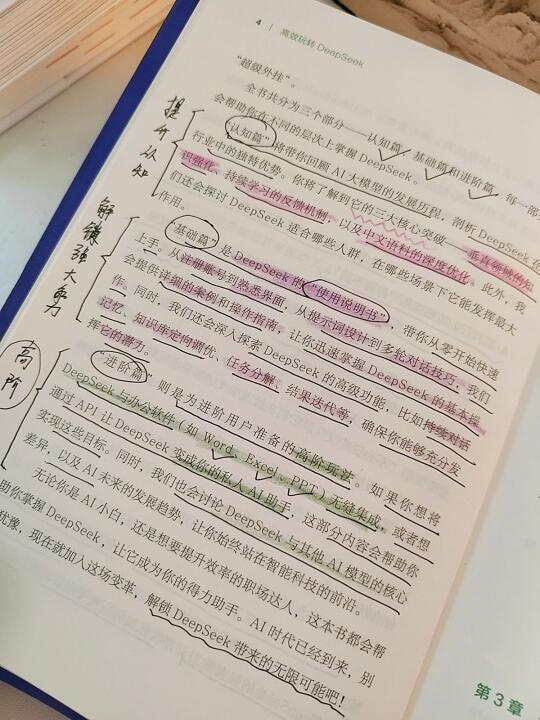 4 | 高效玩转 DeepSeek
“超级外挂”。
全书共分为三个部分——认知篇、基础篇和进阶篇，每一部
会帮助你在不同的层次上掌握 DeepSeek。
“认知篇”将带你回顾 AI 大模型的发展历程，剖析 DeepSeek 在
行业中的独特优势。你将了解到它的三大核心突破——垂直领域的知
识强化、持续学习的反馈机制，以及中文语料的深度优化。此外，我
们还会探讨 DeepSeek 适合哪些人群，在哪些场景下它能发挥最大
作用。
“基础篇”是 DeepSeek 的“使用说明书”，带你从零开始快速
上手。从注册账号到熟悉界面，从提示词设计到多轮对话技巧，我们
会提供详细的案例和操作指南，让你迅速掌握 DeepSeek 的基本操
作。同时，我们还会深入探索 DeepSeek 的高级功能，比如持续对话
记忆、知识库定向调优、任务分解、结果迭代等，确保你能够充分发
挥它的潜力。
“进阶篇”则是为进阶用户准备的高阶玩法。如果你想将
DeepSeek 与办公软件（如 Word、Excel、PPT）无缝集成，或者想
通过 API 让 DeepSeek 变成你的私人 AI 助手，这部分内容会帮助你
实现这些目标。同时，我们也会讨论 DeepSeek 与其他 AI 模型的核心
差异，以及 AI 未来的发展趋势，让你始终站在智能科技的前沿。
无论你是 AI 小白，还是想要提升效率的职场达人，这本书都会帮
助你掌握 DeepSeek，让它成为你的得力助手。AI 时代已经到来，别
犹豫，现在就加入这场变革，解锁 DeepSeek 带来的无限可能吧！
提升认知
解锁强大能力
高阶
第 3 章